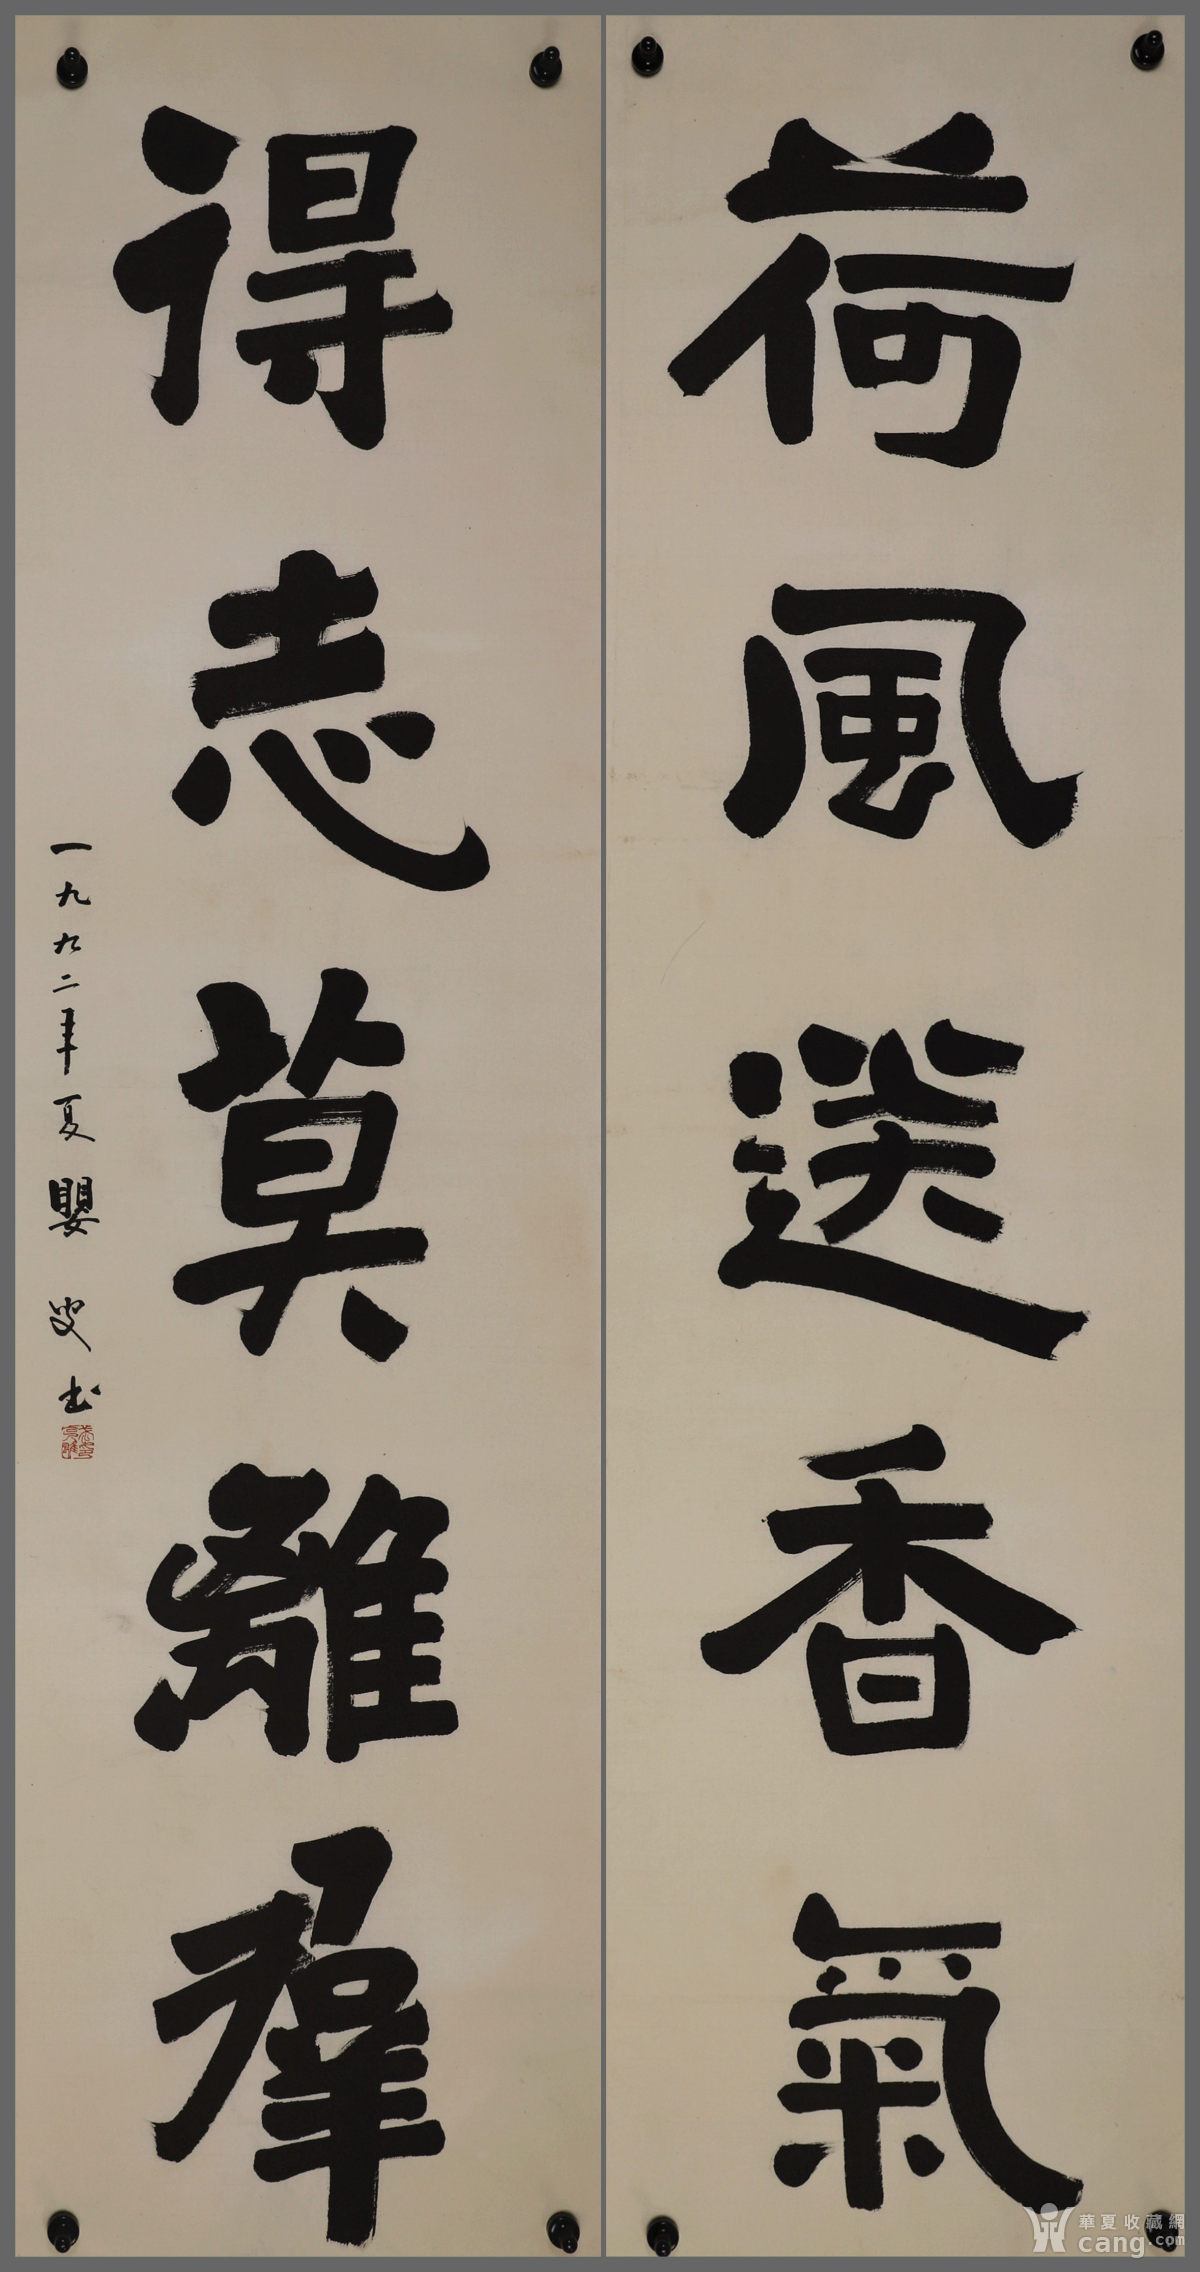 荷風送香氣
得志莫離群
一九九二年夏嬰叟书
華夏收藏網
cang.com